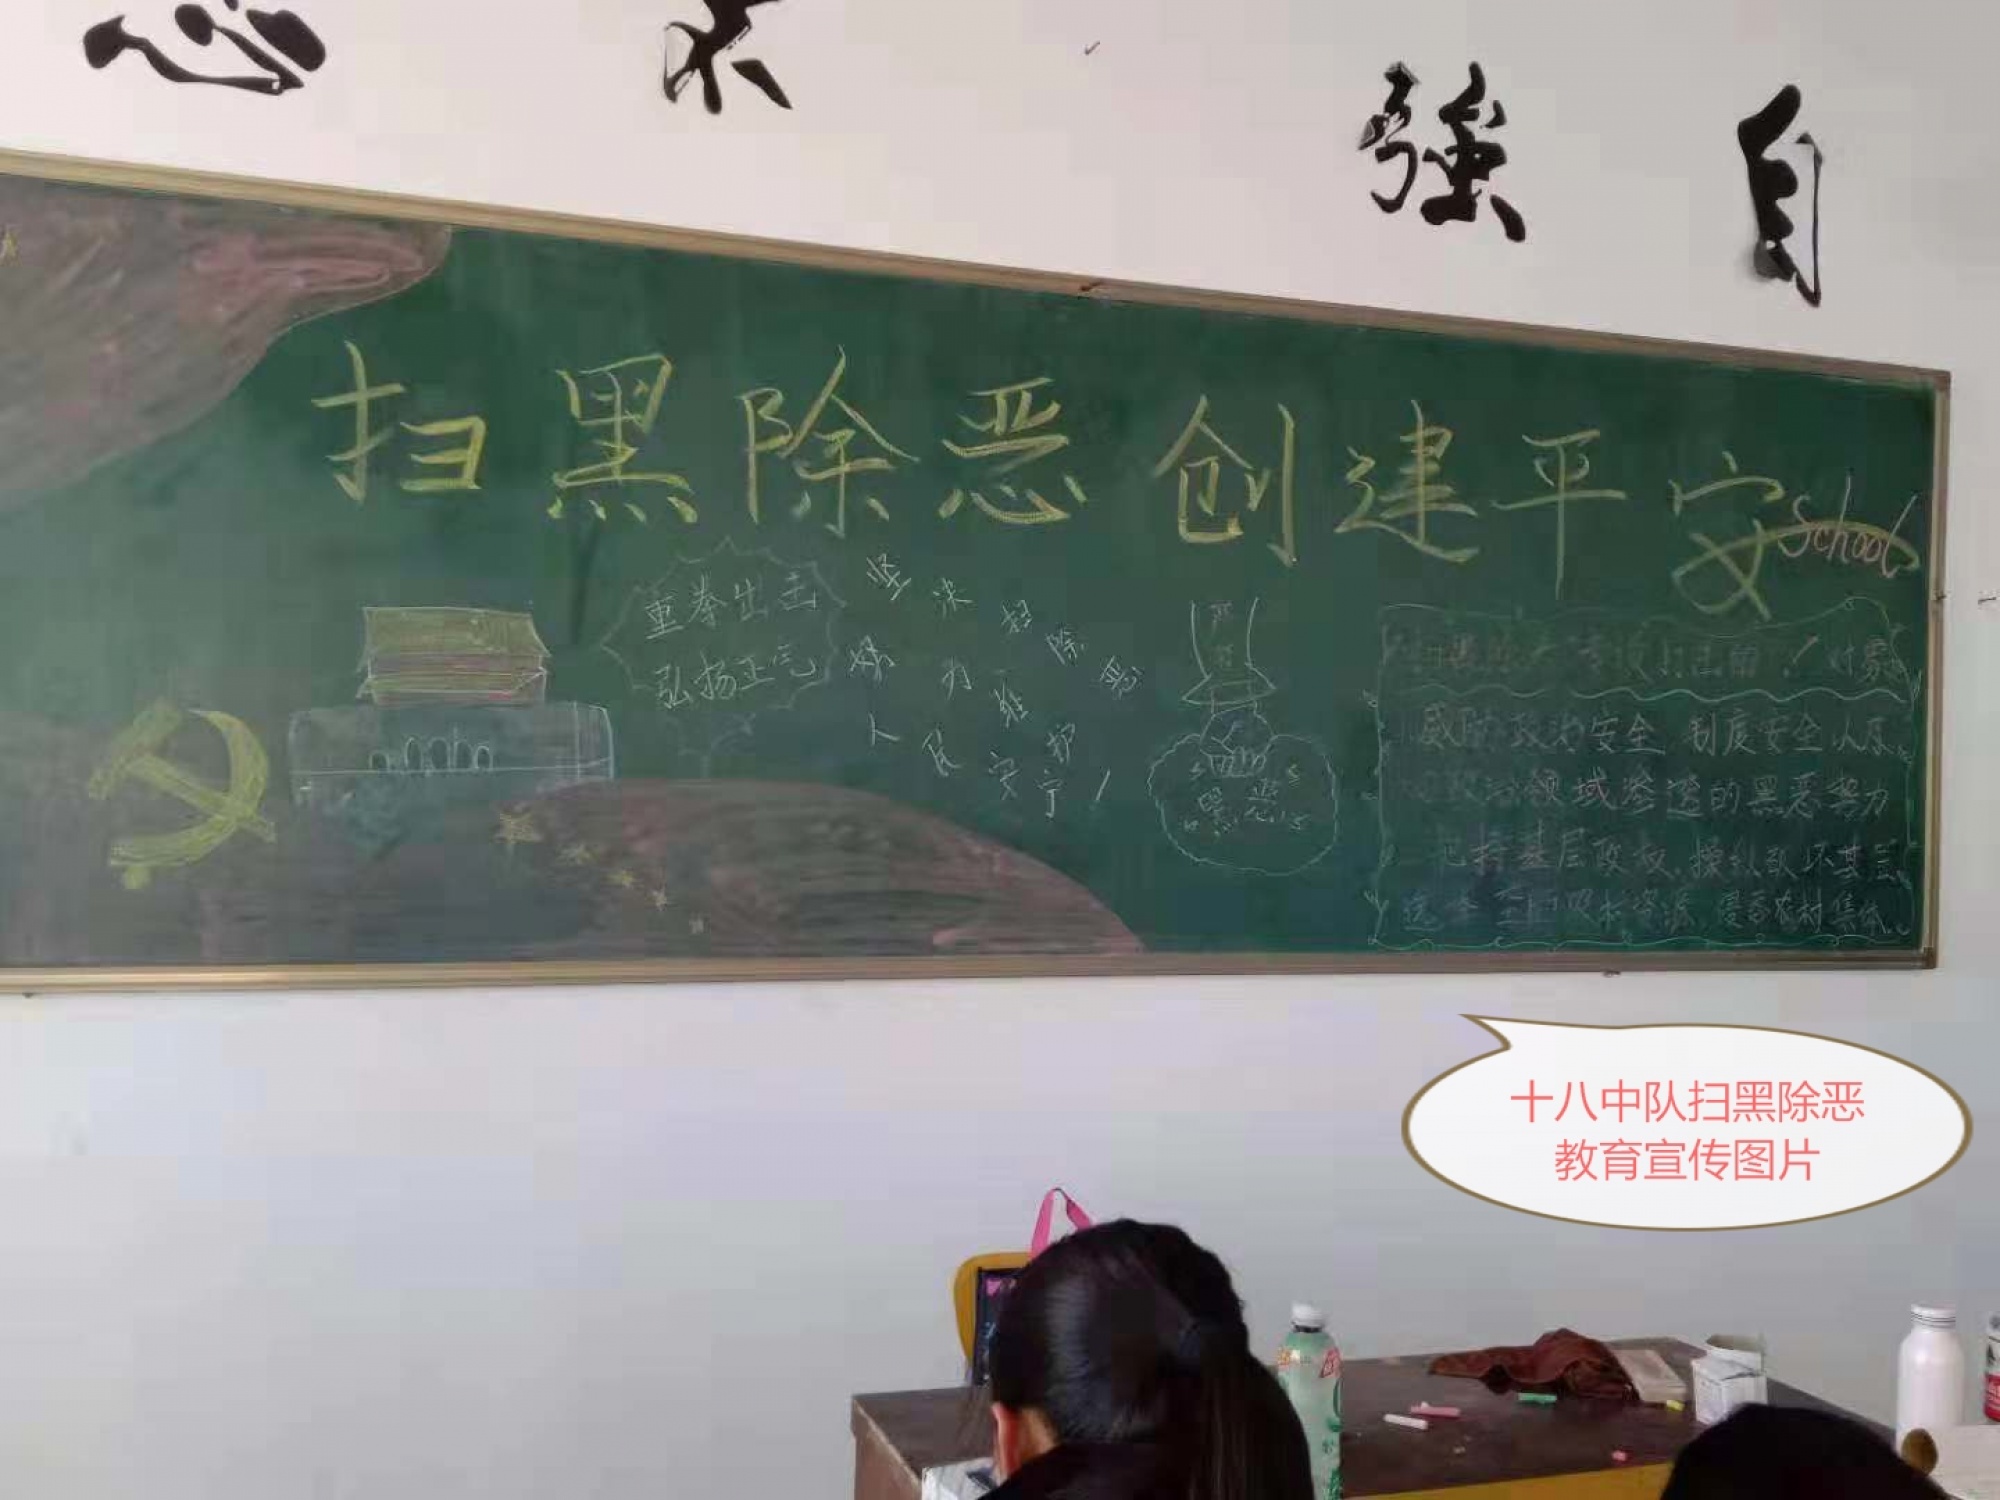 自 強 不 息
扫黑除恶创建平安
School
重拳出击
弘扬正气
坚决扫除恶
势力维护
人民安宁！
黑恶
对象
威胁政治安全 制度安全以及
政治领域渗透的黑恶势力
把持基层政权、操纵破坏基层
选举 侵吞农村集体
十八中队扫黑除恶
教育宣传图片